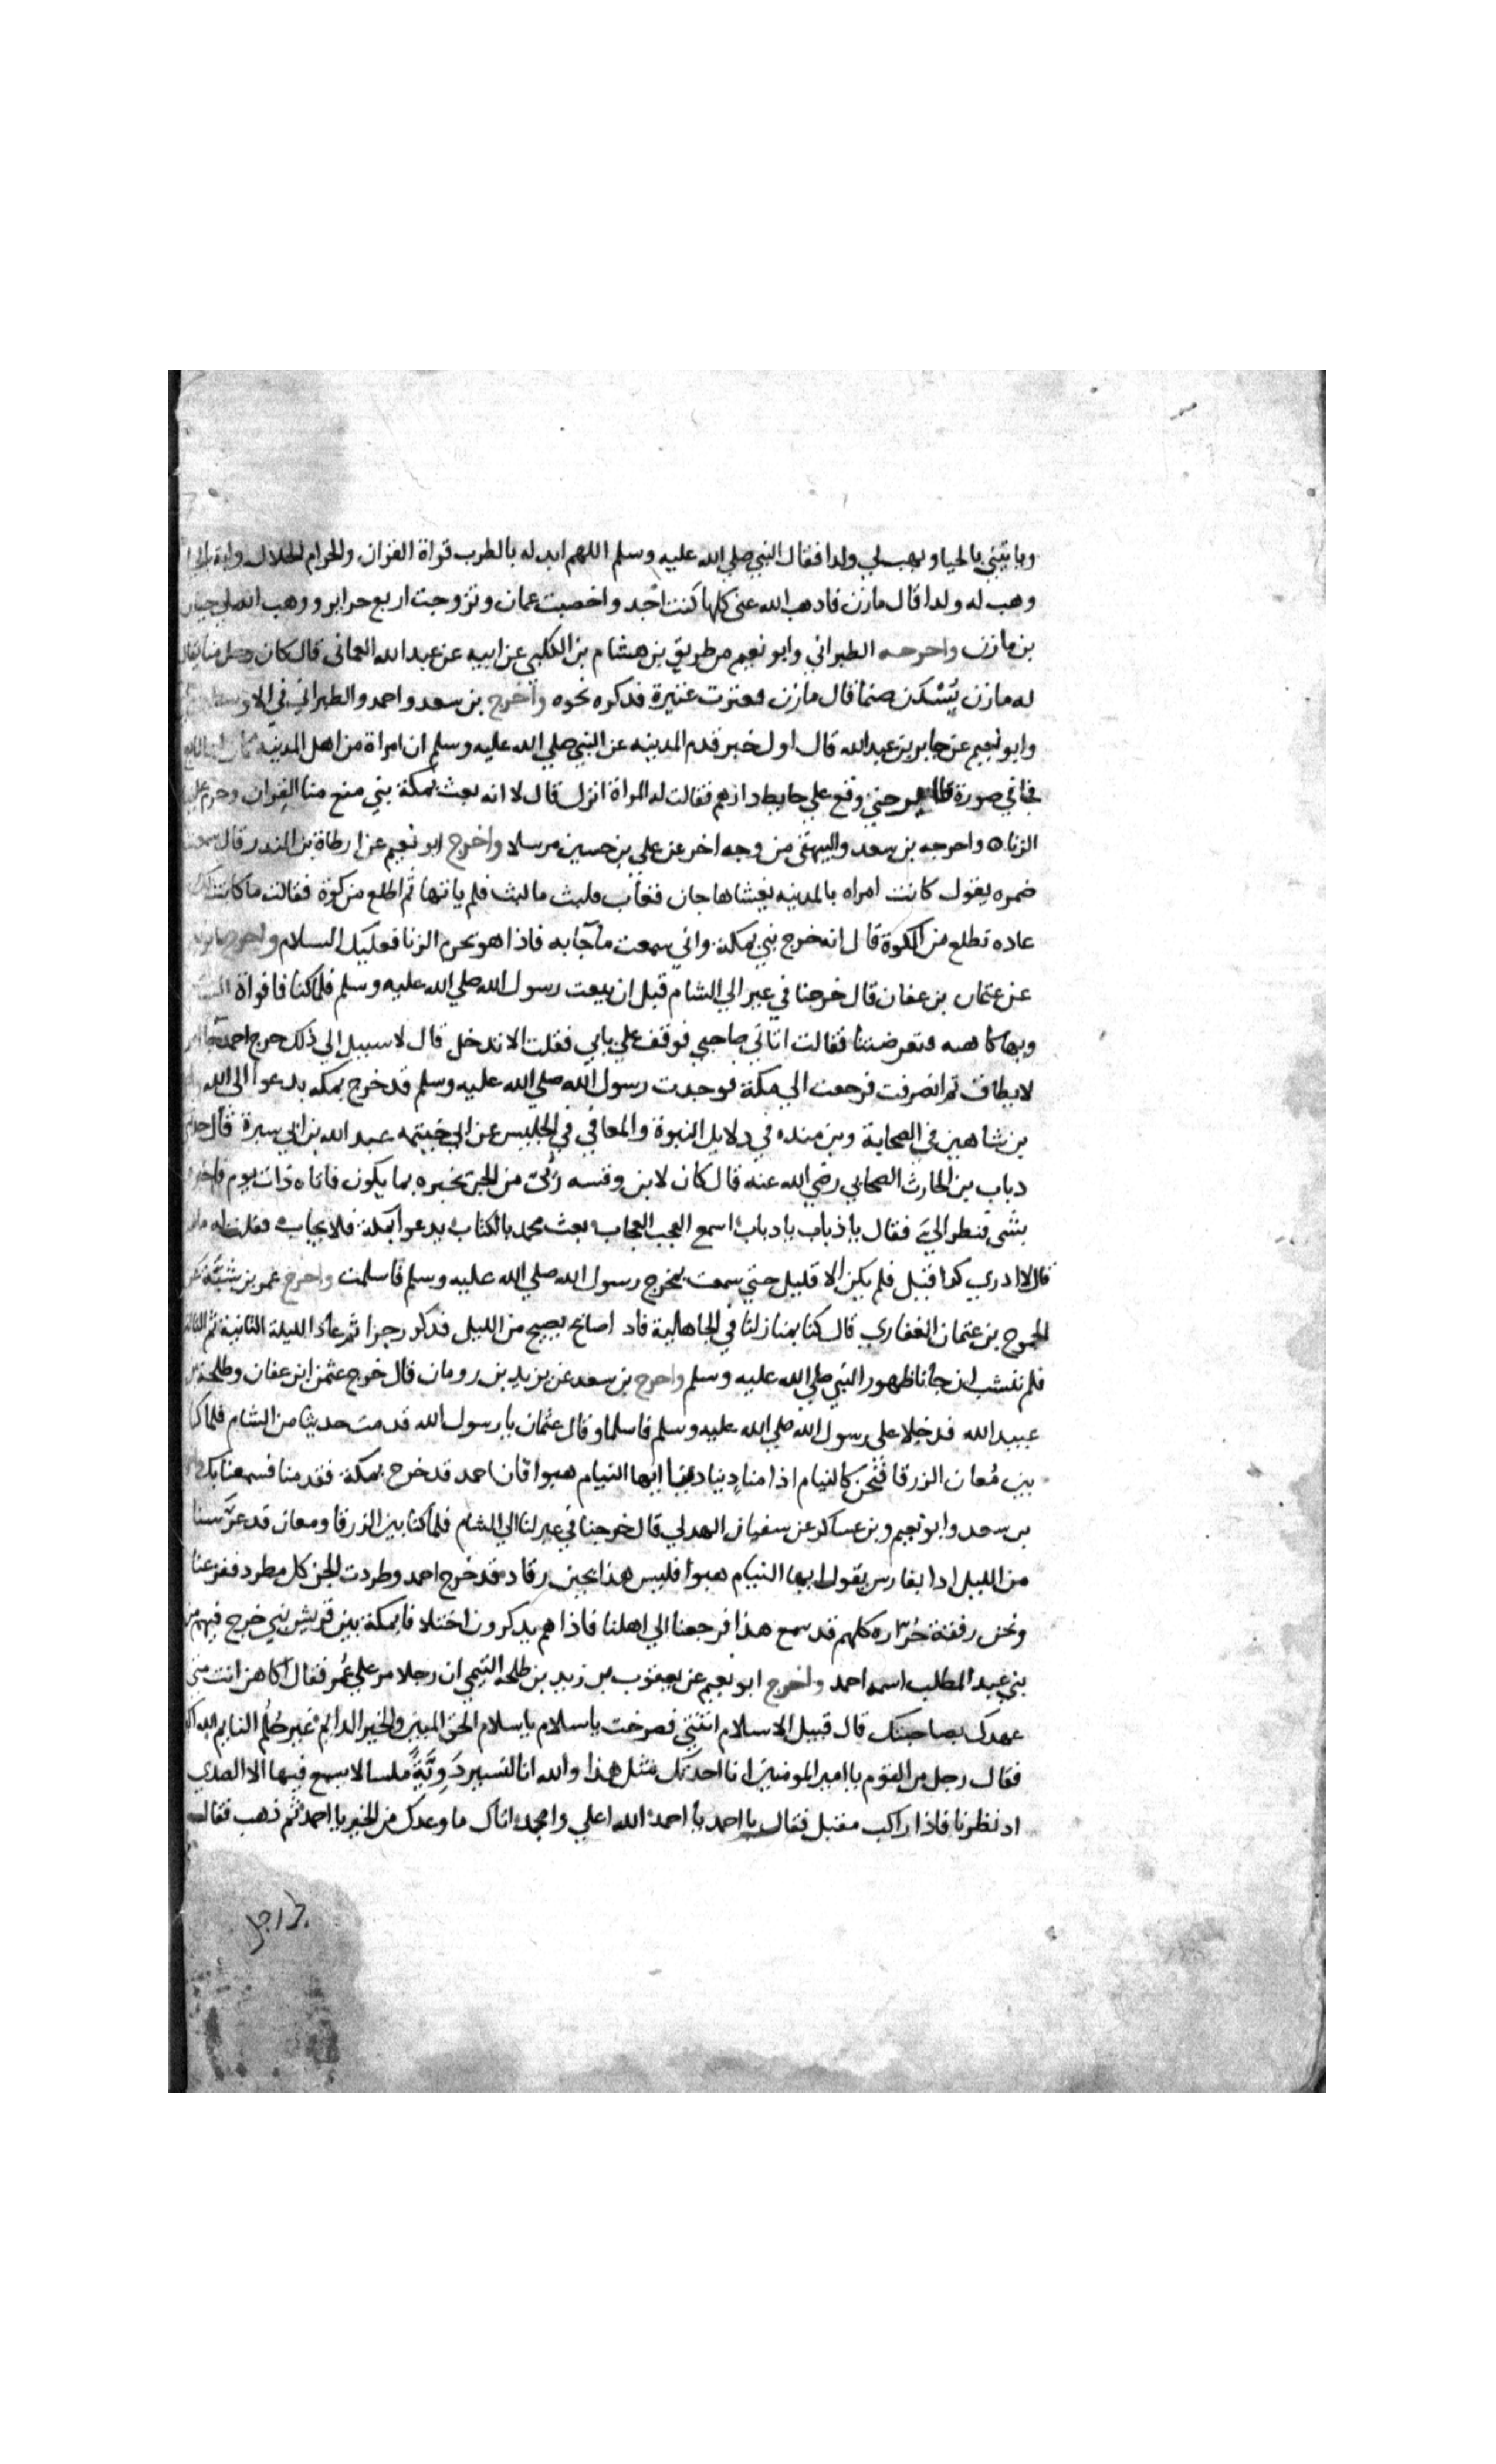 وياتيني بالحيا ويهب لي ولدا فقال النبي صلي الله عليه وسلم اللهم ابدله بالطرب قراة القران وللحرام الحلال واته بالحيا
وهب له ولدا قال مازن فاذهب الله عني كلما كنت اجد واخصبت عمان وتزوجت اربع حراير ووهب الله لي حيان
بن مازن واخرجه الطبراني وابو نعيم من طريق بن هشام بن الكلبي عن ابيه عن عبد الله العماني قال كان رجل منا يقال
له مازن يَسْكن صنما قال مازن فعترت عتيرة فدكره نحوه واخرج بن سعد واحمد والطبراني في الاوسط
وابو نعيم عن جابر بن عبد الله قال اول خبر قدم المدينه عن النبي صلي الله عليه وسلم ان امراة من اهل المدينة كان لها تابع
فجا في صورة طاير حتي وقع علي حايط دارهم فقالت له المراة انزل قال لا انه بعث بمكة نبي منع منا القران وحرم علينا
الزنا ه واخرجه بن سعد والبيهقي من وجه اخر عن علي بن حسين مرسلا واخرج ابو نعيم عن ارطاة بن المندر قال سمعت
ضمره يقول كانت امراه بالمدينه يغشاها جان فغاب فلبث ما لبث فلم ياتها ثم اطلع من كوة فقالت ما كانت لك
عاده تطلع من الكوة قال انه خرج نبي بمكة واني سمعت ما جا به فاذا هو يحرم الزنا فعليك السلام واخرج
عن عثمان بن عفان قال خرجنا في عير الي الشام قبل ان يبعت رسول الله صلي الله عليه وسلم فلما كنا فافواة الشام
وبها كاهنه فتعرضتنا فقالت اتاني صاحبي فوقف علي بابي فقلت الا تدخل قال لا سبيل الي ذلك خرج احمد جا امر
لا يطاق ثم انصرفت فرجعت الي مكة فوجدت رسول الله صلي الله عليه وسلم قد خرج بمكه يدعوا الي الله
بن شاهين في الصحابة وبن منده في دلايل النبوة والمعافي في الجليس عن ابي خيتمه عبد الله بن ابي سبرة قال حدثني
دباب بن الحارث الصحابي رضي الله عنه قال كان لابن وقسه رَئي من الجن يخبره بما يكون فاتاه ذات يوم فاخبره
بشي فنطر اليَ فقال يا ذباب يا دباب اسمع العجب العجاب بعث محمد بالكتاب يدعوا بمكة فلا يجاب فقلت له ما
قال لا ادري كدا قيل فلم يكن الا قليل حتي سمعت بمخرج رسول الله صلي الله عليه وسلم فاسلمت واخرج عمر بن شبَّة عن
الجموح بن عثمان الغفاري قال كنا بمنازلنا في الجاهلية فاد اصايح يصيح من الليل فدكر رجزا ثم عاد الليلة الثانية ثم الثالثة
فلم ننشب ان جأنا ظهور النبي صلي الله عليه وسلم واخرج بن سعد عن يزيد بن رومان قال خرج عثمن ابن عفان وطلحة بن
عبيد الله فدخلا علي رسول الله صلي الله عليه وسلم فاسلما وقال عثمان يا رسول الله قدمت حديثا من الشام فلما كنا
بين مُعان الزرقا فنحن كالنيام اذا منادٍ ينادينا ايها النيام هبوا فان احمد قد خرج بمكة فقدمنا فسمعنا بك
بن سعد وابو نعيم وبن عساكر عن سفيان الهدلي قال خرجنا في عير لنا الي الشام فلما كنا بين الزرقا ومعان قد عرَّسنا
من الليل ادا بفارس يقول ايها النيام هبوا فليس هذا بحين رقاد قد خرج احمد وطردت الجن كل مطرد ففزعنا
ونحن رفقة حُزَّاره كلهم قد سمع هذا فرجعنا الي اهلنا فاذا هم يدكرون اختلافا بمكة بين قريش بنبي خرج فيهم من
بني عبد المطلب اسمه احمد واخرج ابو نعيم عن يعقوب بن زيد بن طلحه التيمي ان رجلا مر علي عُمر فقال اكاهن انت متي
عهدك بصاحبتك قال قبيل الاسلام اتتني فصرخت يا سلام يا سلام الحق المبين والخير الدايم غير حُلُم النايم الله اكبر
فقال رجل من القوم يا امير المومنين انا احدثك مثل هذا والله انا لنسير دَوِيَّةً ملسا لا يسمع فيها الا الصدي
اد نظرنا فاذا راكب مقبل فقال يا احمد يا احمد الله اعلي وامجد اتاك ما وعدك من الخير يا احمد ثم ذهب فقال
رجل